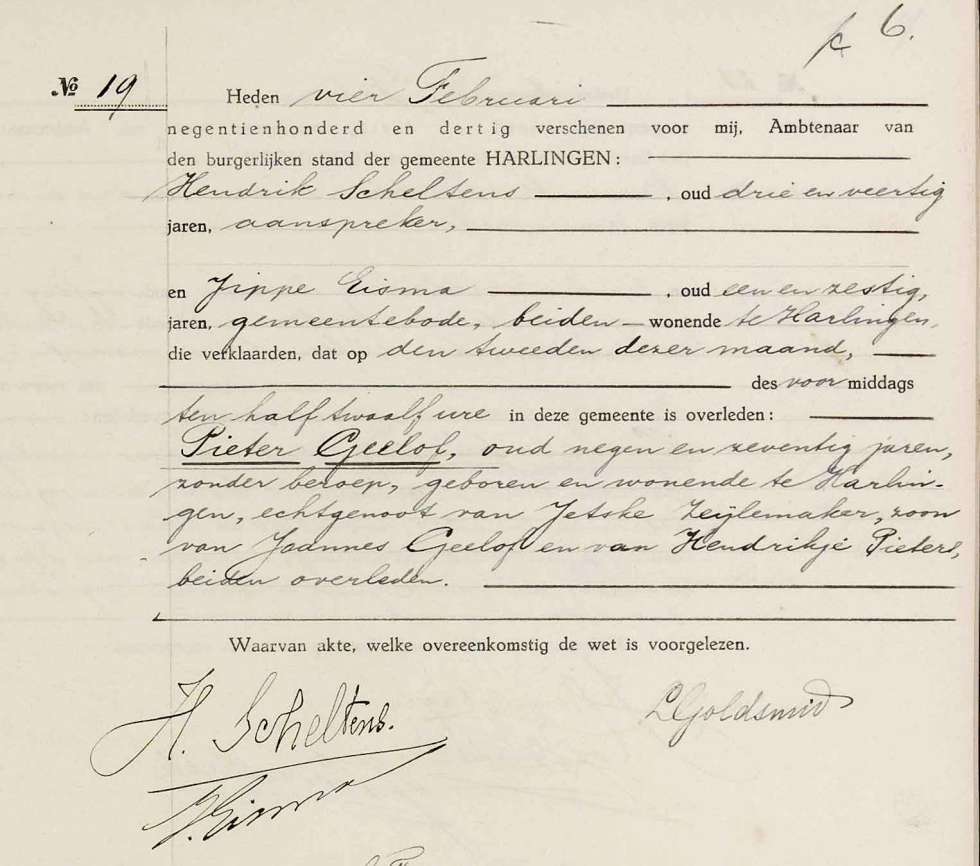 6.
№ 19
Heden vier Februari
negentienhonderd en dertig verschenen voor mij, Ambtenaar van
den burgerlijken stand der gemeente HARLINGEN:
Hendrik Scheltens, oud drie en veertig
jaren, aanspreker,
en Jippe Eisma, oud een en zestig,
jaren, gemeentebode, beiden wonende te Harlingen,
die verklaarden, dat op den tweeden dezer maand,
des voor middags
ten half twaalf ure in deze gemeente is overleden:
Pieter Geelof, oud negen en zeventig jaren,
zonder beroep, geboren en wonende te Harlin-
gen, echtgenoot van Jetske Zeijlemaker, zoon
van Joannes Geelof en van Hendrikje Pieters,
beiden overleden.
Waarvan akte, welke overeenkomstig de wet is voorgelezen.
H. Scheltens.
LGoldsmid
J. Eisma